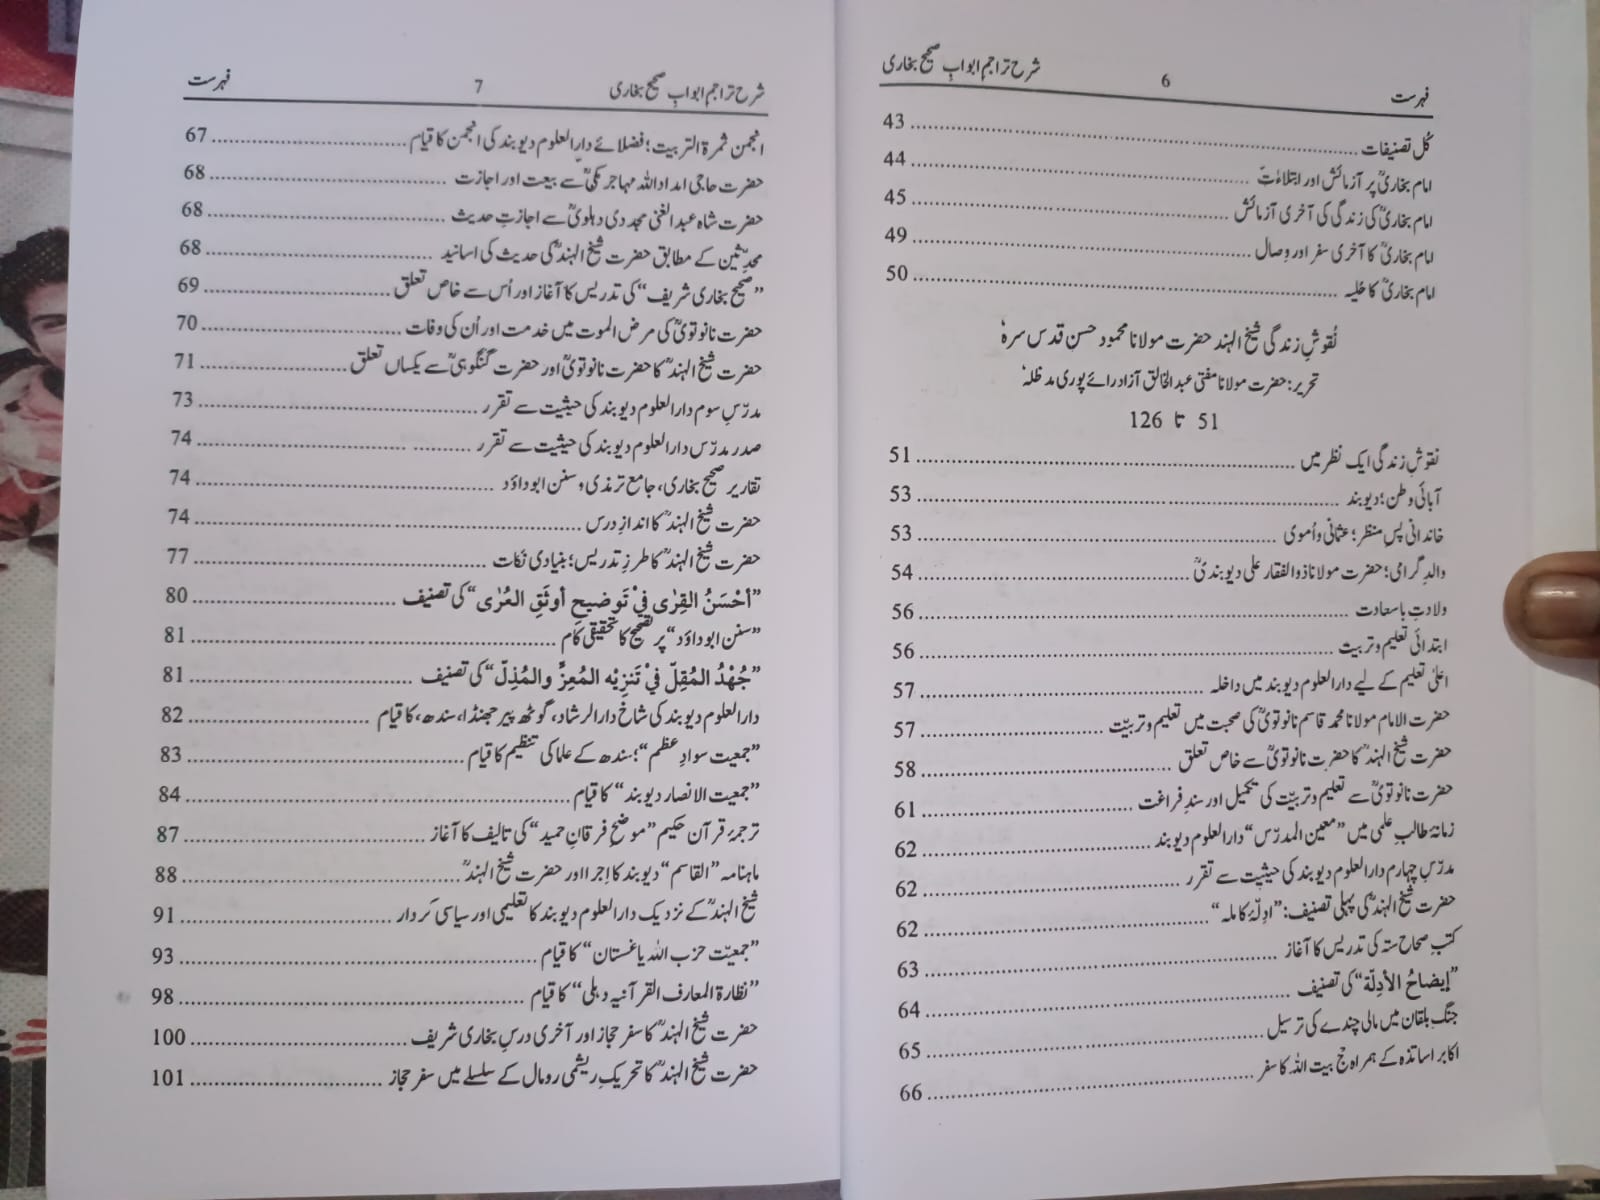 فہرست 6 شرح تراجم ابوابِ صحیح بخاری
کُل تصنیفات ........ 43
امام بخاریؒ پر آزمائش اور ابتلاءات ........ 44
امام بخاریؒ کی زندگی کی آخری آزمائش ........ 45
امام بخاریؒ کا آخری سفر اور وِصال ........ 49
امام بخاریؒ کا حُلیہ ........ 50
نُقوشِ زندگی شیخ الہند حضرت مولانا محمود حسن قدس سرہٗ
تحریر: حضرت مولانا مفتی عبدالخالق آزاد رائے پوری مدظلہٗ
51 تا 126
نقوشِ زندگی ایک نظر میں ........ 51
آبائی وطن؛ دیوبند ........ 53
خاندانی پسِ منظر؛ عثمانی و اُموی ........ 53
والدِ گرامی؛ حضرت مولانا ذوالفقار علی دیوبندیؒ ........ 54
ولادتِ باسعادت ........ 56
ابتدائی تعلیم و تربیت ........ 56
اعلیٰ تعلیم کے لیے دارالعلوم دیوبند میں داخلہ ........ 57
حضرت الامام مولانا محمد قاسم نانوتویؒ کی صحبت میں تعلیم و تربیّت ........ 57
حضرت شیخ الہندؒ کا حضرت نانوتویؒ سے خاص تعلق ........ 58
حضرت نانوتویؒ سے تعلیم و تربیّت کی تکمیل اور سندِ فراغت ........ 61
زمانۂ طالبِ علمی میں ”معین المدرّس“ دارالعلوم دیوبند ........ 62
مدرّسِ چہارم دارالعلوم دیوبند کی حیثیت سے تقرر ........ 62
حضرت شیخ الہندؒ کی پہلی تصنیف: ”ادِلّۂ کاملہ“ ........ 62
کتبِ صحاح ستہ کی تدریس کا آغاز ........ 63
”إیضاحُ الأدِلّة“ کی تصنیف ........ 64
جنگِ بلقان میں مالی چندے کی ترسیل ........ 65
اکابر اساتذہ کے ہمراہ حج بیت اللہ کا سفر ........ 66
شرح تراجم ابوابِ صحیح بخاری 7 فہرست
انجمن ثمرۃ التربیت؛ فضلائے دارالعلوم دیوبند کی انجمن کا قیام ........ 67
حضرت حاجی امداد اللہ مہاجر مکیؒ سے بیعت اور اجازت ........ 68
حضرت شاہ عبدالغنی مجددی دہلویؒ سے اجازتِ حدیث ........ 68
محدِّثین کے مطابق حضرت شیخ الہندؒ کی حدیث کی اسانید ........ 68
”صحیح بخاری شریف“ کی تدریس کا آغاز اور اُس سے خاص تعلق ........ 69
حضرت نانوتویؒ کی مرض الموت میں خدمت اور اُن کی وفات ........ 70
حضرت شیخ الہندؒ کا حضرت نانوتویؒ اور حضرت گنگوہیؒ سے یکساں تعلق ........ 71
مدرّسِ سوم دارالعلوم دیوبند کی حیثیت سے تقرر ........ 73
صدر مدرّس دارالعلوم دیوبند کی حیثیت سے تقرر ........ 74
تقاریر صحیح بخاری، جامع ترمذی و سنن ابوداؤد ........ 74
حضرت شیخ الہندؒ کا اندازِ درس ........ 74
حضرت شیخ الہندؒ کا طرزِ تدریس؛ بنیادی نکات ........ 77
”أحْسَنُ القِرٰی فِيْ تَوضِيحِ أوثَقِ العُرٰی“ کی تصنیف ........ 80
”سنن ابوداؤد“ پر تصحیح کا تحقیقی کام ........ 81
”جُهْدُ المُقِلّ فِيْ تَنزِيْه المُعِزِّ والمُذِلّ“ کی تصنیف ........ 81
دارالعلوم دیوبند کی شاخ دارالرشاد، گوٹھ پیر جھنڈا، سندھ، کا قیام ........ 82
”جمعیت سوادِ عظم“؛ سندھ کے علما کی تنظیم کا قیام ........ 83
”جمعیت الانصار دیوبند“ کا قیام ........ 84
ترجمۂ قرآن حکیم ”موضحِ فرقانِ حمید“ کی تالیف کا آغاز ........ 87
ماہنامہ ”القاسم“ دیوبند کا اِجرا اور حضرت شیخ الہندؒ ........ 88
شیخ الہندؒ کے نزدیک دارالعلوم دیوبند کا تعلیمی اور سیاسی کردار ........ 91
”جمعیّت حزب اللہ یاغستان“ کا قیام ........ 93
”نظارۃ المعارف القرآنیہ دہلی“ کا قیام ........ 98
حضرت شیخ الہندؒ کا سفرِ حجاز اور آخری درسِ بخاری شریف ........ 100
حضرت شیخ الہندؒ کا تحریکِ ریشمی رومال کے سلسلے میں سفرِ حجاز ........ 101